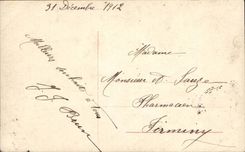 31 Décembre 1912
Meilleurs souhaits à tous
Madame
Monsieur et
Pharmacien
Firminy